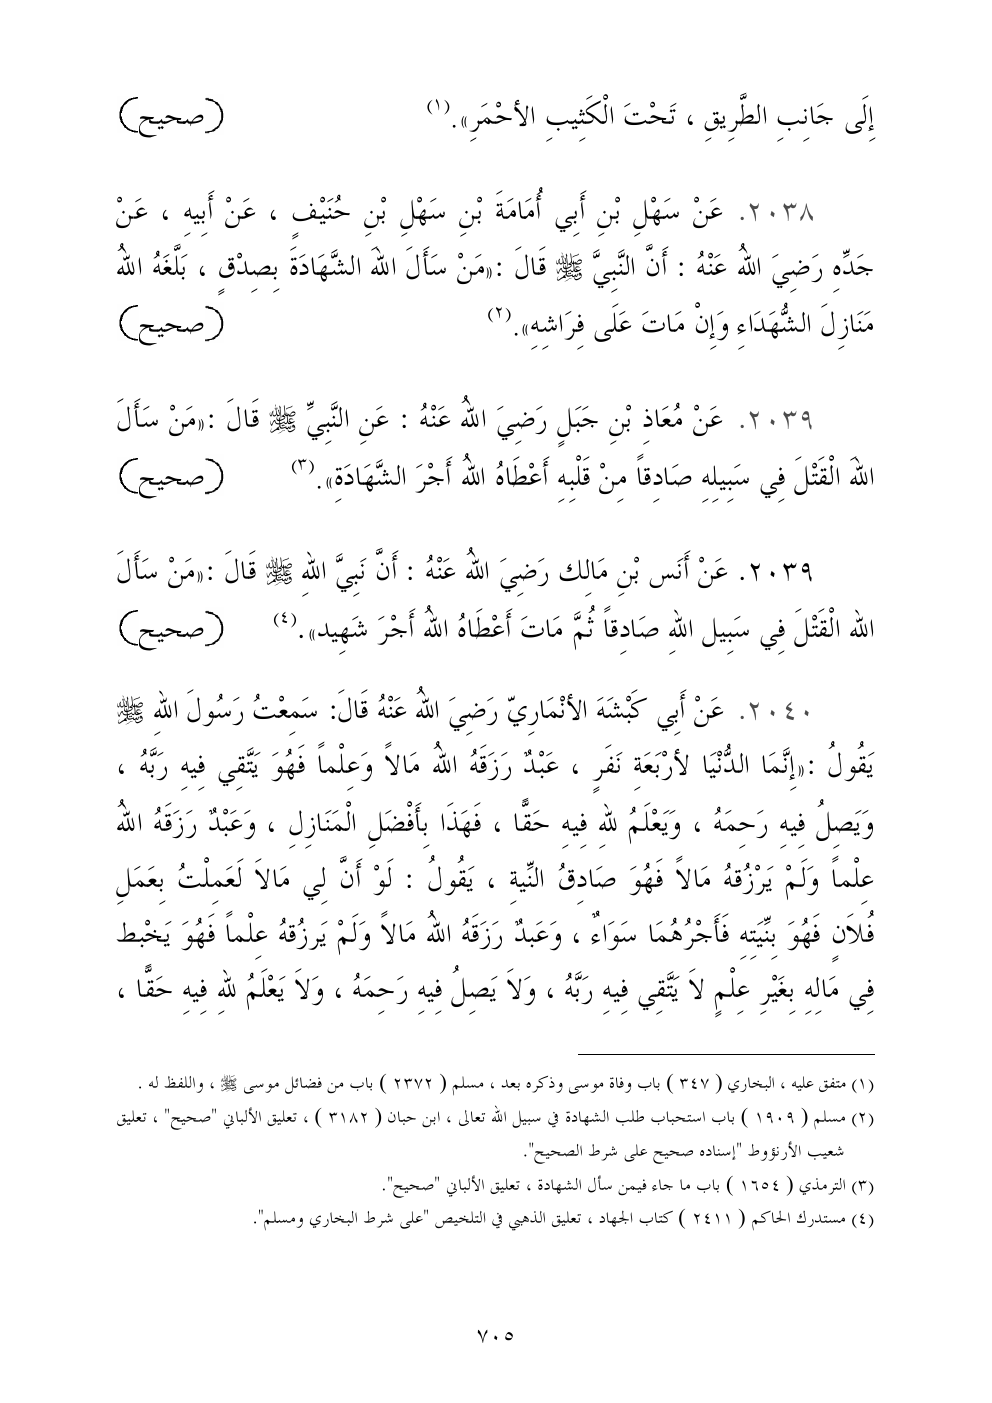 إِلَى جَانِبِ الطَّرِيقِ ، تَحْتَ الْكَثِيبِ الأحْمَرِ».(١) (صحيح)
٢٠٣٨. عَنْ سَهْلِ بْنِ أَبِي أُمَامَةَ بْنِ سَهْلِ بْنِ حُنَيْفٍ ، عَنْ أَبِيهِ ، عَنْ
جَدِّهِ رَضِيَ اللهُ عَنْهُ : أَنَّ النَّبِيَّ ﷺ قَالَ :«مَنْ سَأَلَ اللهَ الشَّهَادَةَ بِصِدْقٍ ، بَلَّغَهُ اللهُ
مَنَازِلَ الشُّهَدَاءِ وَإِنْ مَاتَ عَلَى فِرَاشِهِ».(٢) (صحيح)
٢٠٣٩. عَنْ مُعَاذِ بْنِ جَبَلٍ رَضِيَ اللهُ عَنْهُ : عَنِ النَّبِيِّ ﷺ قَالَ :«مَنْ سَأَلَ
اللهَ الْقَتْلَ فِي سَبِيلِهِ صَادِقاً مِنْ قَلْبِهِ أَعْطَاهُ اللهُ أَجْرَ الشَّهَادَةِ».(٣) (صحيح)
٢٠٣٩. عَنْ أَنَس بْنِ مَالِك رَضِيَ اللهُ عَنْهُ : أَنَّ نَبِيَّ اللهِ ﷺ قَالَ :«مَنْ سَأَلَ
الله الْقَتْلَ فِي سَبِيل اللهِ صَادِقاً ثُمَّ مَاتَ أَعْطَاهُ اللهُ أَجْرَ شَهِيد».(٤) (صحيح)
٢٠٤٠. عَنْ أَبِي كَبْشَهَ الأنْمَارِيّ رَضِيَ اللهُ عَنْهُ قَالَ: سَمِعْتُ رَسُولَ اللهِ ﷺ
يَقُولُ :«إِنَّمَا الدُّنْيَا لأرْبَعَةِ نَفَرٍ ، عَبْدٌ رَزَقَهُ اللهُ مَالاً وَعِلْماً فَهُوَ يَتَّقِي فِيهِ رَبَّهُ ،
وَيَصِلُ فِيهِ رَحِمَهُ ، وَيَعْلَمُ للهِ فِيهِ حَقًّا ، فَهَذَا بِأَفْضَلِ الْمَنَازِلِ ، وَعَبْدٌ رَزَقَهُ اللهُ
عِلْماً وَلَمْ يَرْزُقهُ مَالاً فَهُوَ صَادِقُ النِّيةِ ، يَقُولُ : لَوْ أَنَّ لِي مَالاَ لَعَمِلْتُ بِعَمَلِ
فُلاَنٍ فَهُوَ بِنِّيَتِهِ فَأَجْرُهُمَا سَوَاءٌ ، وَعَبدٌ رَزَقَهُ اللهُ مَالاً وَلَمْ يَرزُقهُ عِلْماً فَهُوَ يَخْبْط
فِي مَالِهِ بِغَيْرِ عِلْمٍ لاَ يَتَّقِي فِيهِ رَبَّهُ ، وَلاَ يَصِلُ فِيهِ رَحِمَهُ ، وَلاَ يَعْلَمُ للهِ فِيهِ حَقًّا ،
(١) متفق عليه ، البخاري ( ٣٤٧ ) باب وفاة موسى وذكره بعد ، مسلم ( ٢٣٧٢ ) باب من فضائل موسى ﷺ ، واللفظ له .
(٢) مسلم ( ١٩٠٩ ) باب استحباب طلب الشهادة في سبيل الله تعالى ، ابن حبان ( ٣١٨٢ ) ، تعليق الألباني "صحيح" ، تعليق
شعيب الأرنؤوط "إسناده صحيح على شرط الصحيح".
(٣) الترمذي ( ١٦٥٤ ) باب ما جاء فيمن سأل الشهادة ، تعليق الألباني "صحيح".
(٤) مستدرك الحاكم ( ٢٤١١ ) كتاب الجهاد ، تعليق الذهبي في التلخيص "على شرط البخاري ومسلم".
٧٠٥